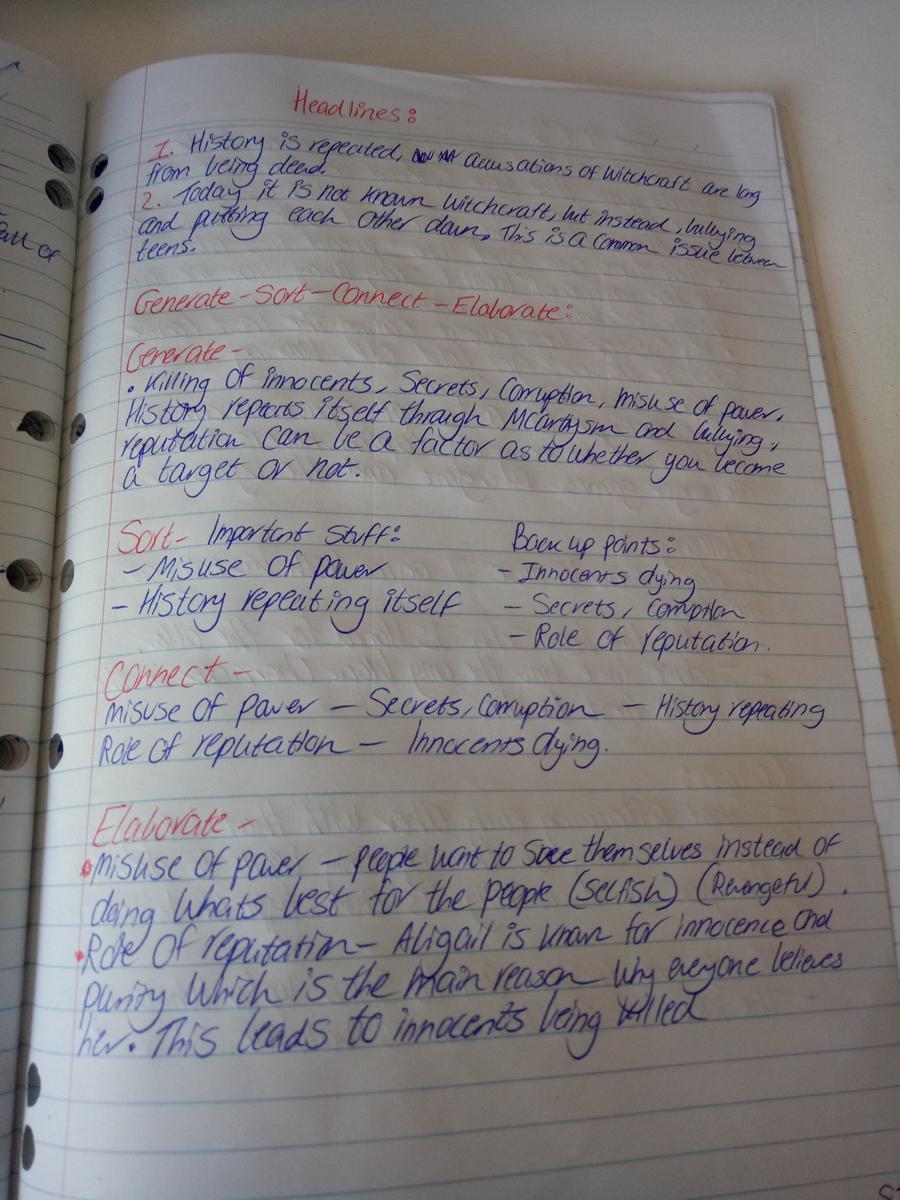 all of
Headlines:
1. History is repeated, accusations of witchcraft are long
from being dead.
2. Today it is not known witchcraft, but instead, bullying
and putting each other down. This is a common issue between
teens.
Generate-Sort-Connect-Elaborate:
Generate-
• Killing of innocents, Secrets, Corruption, misuse of power,
History repeats itself through McCartysm and bullying,
reputation can be a factor as to whether you become
a target or not.
Sort- Important Stuff: Back up points:
- Misuse of power - Innocents dying
- History repeating itself - Secrets, Corruption
- Role of reputation.
Connect-
Misuse of power - Secrets, Corruption - History repeating
Role of reputation - Innocents dying.
Elaborate-
• Misuse of power - people want to save themselves instead of
doing whats best for the people (Selfish) (Revengeful).
• Role of reputation- Abigail is known for innocence and
purity which is the main reason why everyone believes
her. This leads to innocents being killed